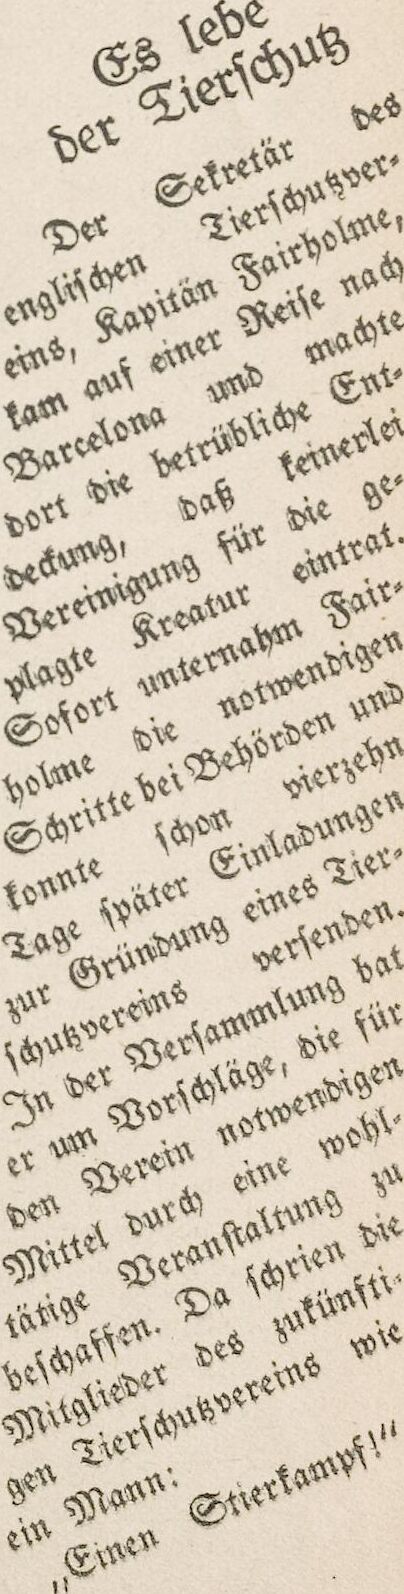 Es lebe
der Tierschutz
Der Sekretär des
englischen Tierschutzver-
eins, Kapitän Fairholme,
kam auf einer Reise nach
Barcelona und machte
dort die betrübliche Ent-
deckung, daß keinerlei
Vereinigung für die ge-
plagte Kreatur eintrat.
Sofort unternahm Fair-
holme die notwendigen
Schritte bei Behörden und
konnte schon vierzehn
Tage später Einladungen
zur Gründung eines Tier-
schutzvereins versenden.
In der Versammlung bat
er um Vorschläge, die für
den Verein notwendigen
Mittel durch eine wohl-
tätige Veranstaltung zu
beschaffen. Da schrien die
Mitglieder des zukünfti-
gen Tierschutzvereins wie
ein Mann:
„Einen Stierkampf!“